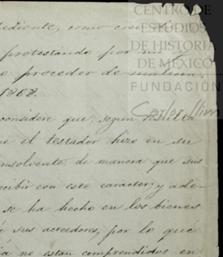 CENTRO DE
ESTUDIOS
DE HISTORIA
DE MÉXICO
FUNDACIÓN
Carlos Slim
ediente, como
protestando por
o proceder de
1868.
considera que, segun
el testador hizo en su
insolvente, de manera que sus
cibir con este caracter, y ade
se ha hecho en los bienes
sus acreedores, por lo que
no estan comprendidas en